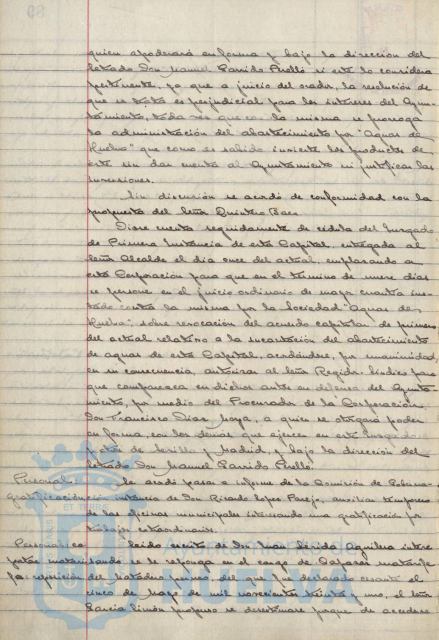 quien apoderará en forma y bajo la dirección del
letrado Don Manuel Garrido Perelló si éste lo considera
pertinente, ya que a juicio del orador, la resolución de
que se trata es perjudicial para los intereses del Ayun-
tamiento, toda vez que con la misma se prorroga
la administración del abastecimiento por "Aguas de
Huelva" que como es sabido invierte los productos de
éste sin dar cuenta al Ayuntamiento ni justificar las
inversiones.
Sin discusión se acordó de conformidad con la
propuesta del Señor Quintero Baez
Diose cuenta seguidamente de cédula del Juzgado
de Primera Instancia de esta Capital, entregada al
Señor Alcalde el día once del actual, emplazando a
esta Corporación para que en el término de nueve días
se persone en el juicio ordinario de mayor cuantía ins-
tado contra la misma por la Sociedad "Aguas de
Huelva", sobre revocación del acuerdo capitular de primero
del actual relativo a la incautación del abastecimiento
de aguas de esta Capital, acordándose, por unanimidad,
en su consecuencia, autorizar al Señor Regidor Síndico para
que comparezca en dichos autos en defensa del Ayunta-
miento, por medio del Procurador de la Corporación
Don Francisco Díaz Moya, a quien se otorgará poder
en forma, con los demás que ejercen en este Juzgado
y otros de Sevilla y Madrid, y bajo la dirección del
letrado Don Manuel Garrido Perelló.
Personal. Se acordó pasar a informe de la Comisión de Goberna-
gratificación. ción instancia de Don Ricardo López Parejo, auxiliar temporero
de las oficinas municipales interesando una gratificación por
trabajos extraordinarios.
Personal. Leído escrito de Don Juan de la Aguilera intere
sando se le reponga en el cargo de Capataz matarife
reposición del Matadero público, del que fue declarado cesante el
cinco de Mayo de mil novecientos treinta y uno, el Señor
García Limón propuso se desestimare porque de accederse
Ayuntamiento